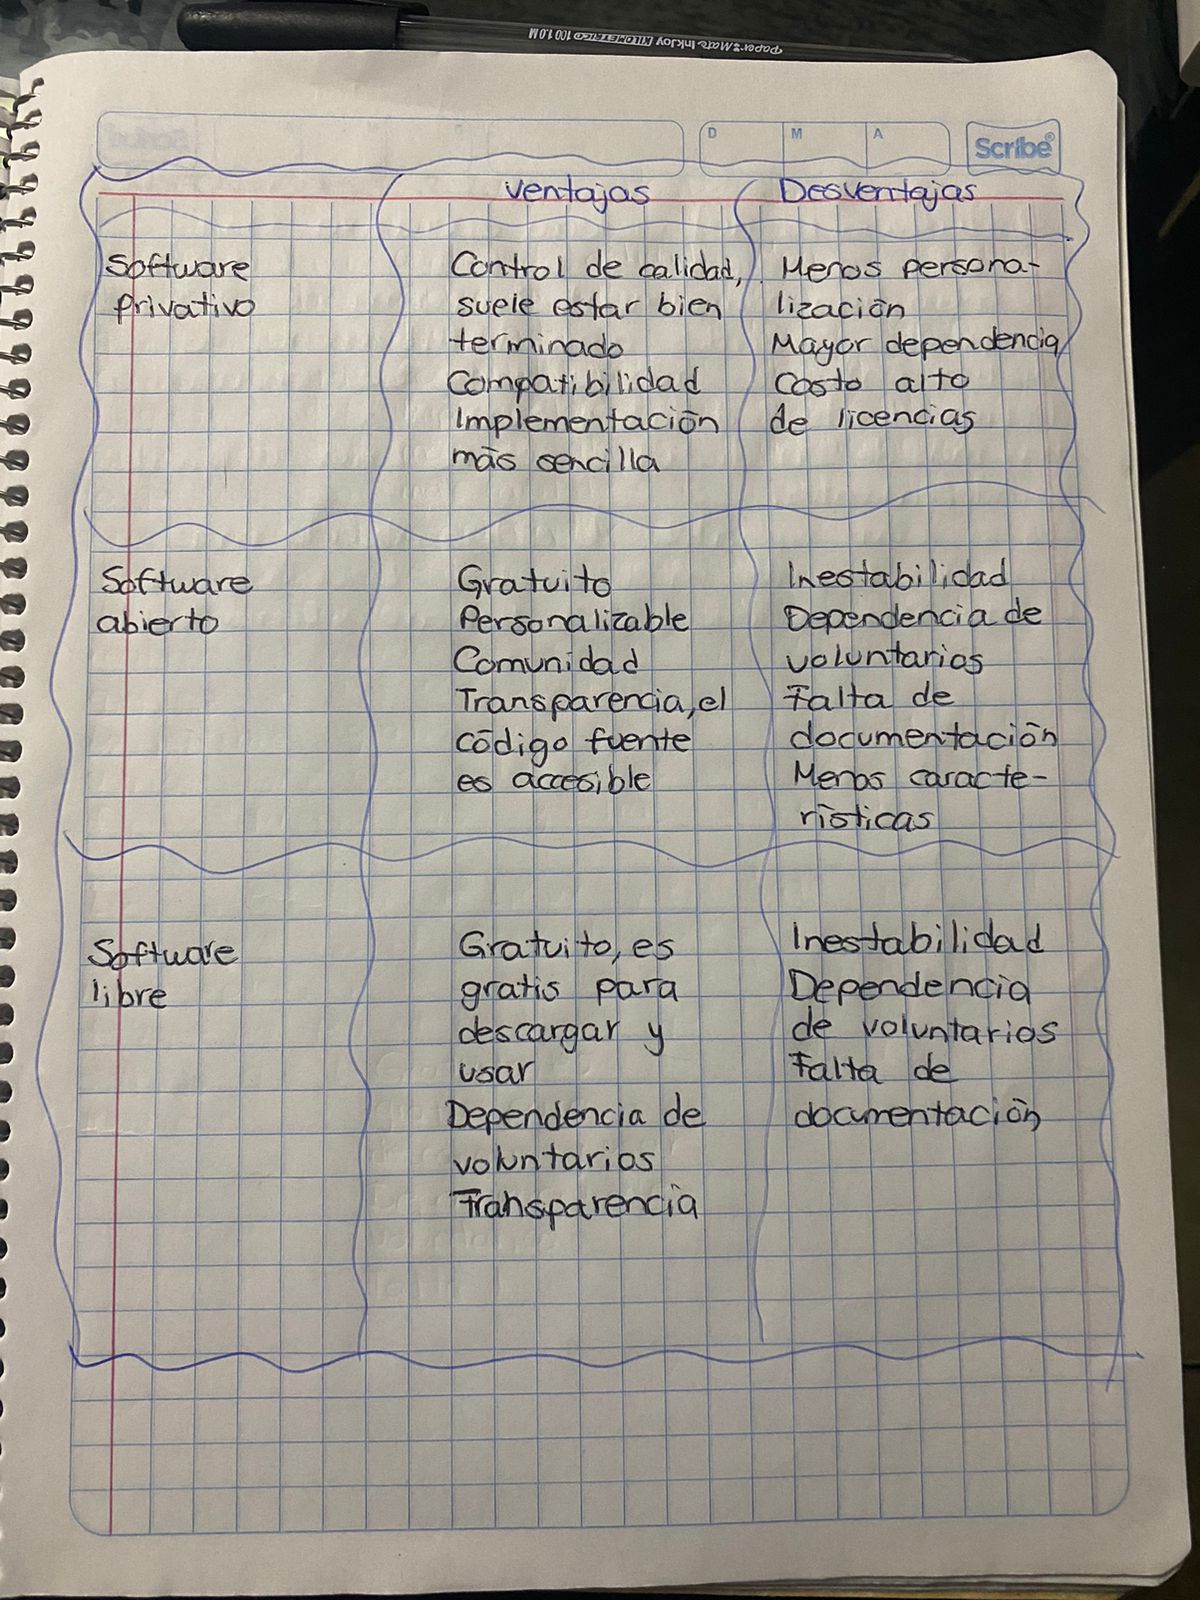 Paper Mate InkJoy KILOMETRICO 100 1.0 M
D M A
Scribe
Ventajas
Desventajas
Software
privativo
Control de calidad,
suele estar bien
terminado
Compatibilidad
Implementación
más sencilla
Menos persona-
lización
Mayor dependencia
Costo alto
de licencias
Software
abierto
Gratuito
Personalizable
Comunidad
Transparencia, el
código fuente
es accesible
Inestabilidad
Dependencia de
voluntarios
Falta de
documentación
Menos caracte-
rísticas
Software
libre
Gratuito, es
gratis para
descargar y
usar
Dependencia de
voluntarios
Transparencia
Inestabilidad
Dependencia
de voluntarios
Falta de
documentación